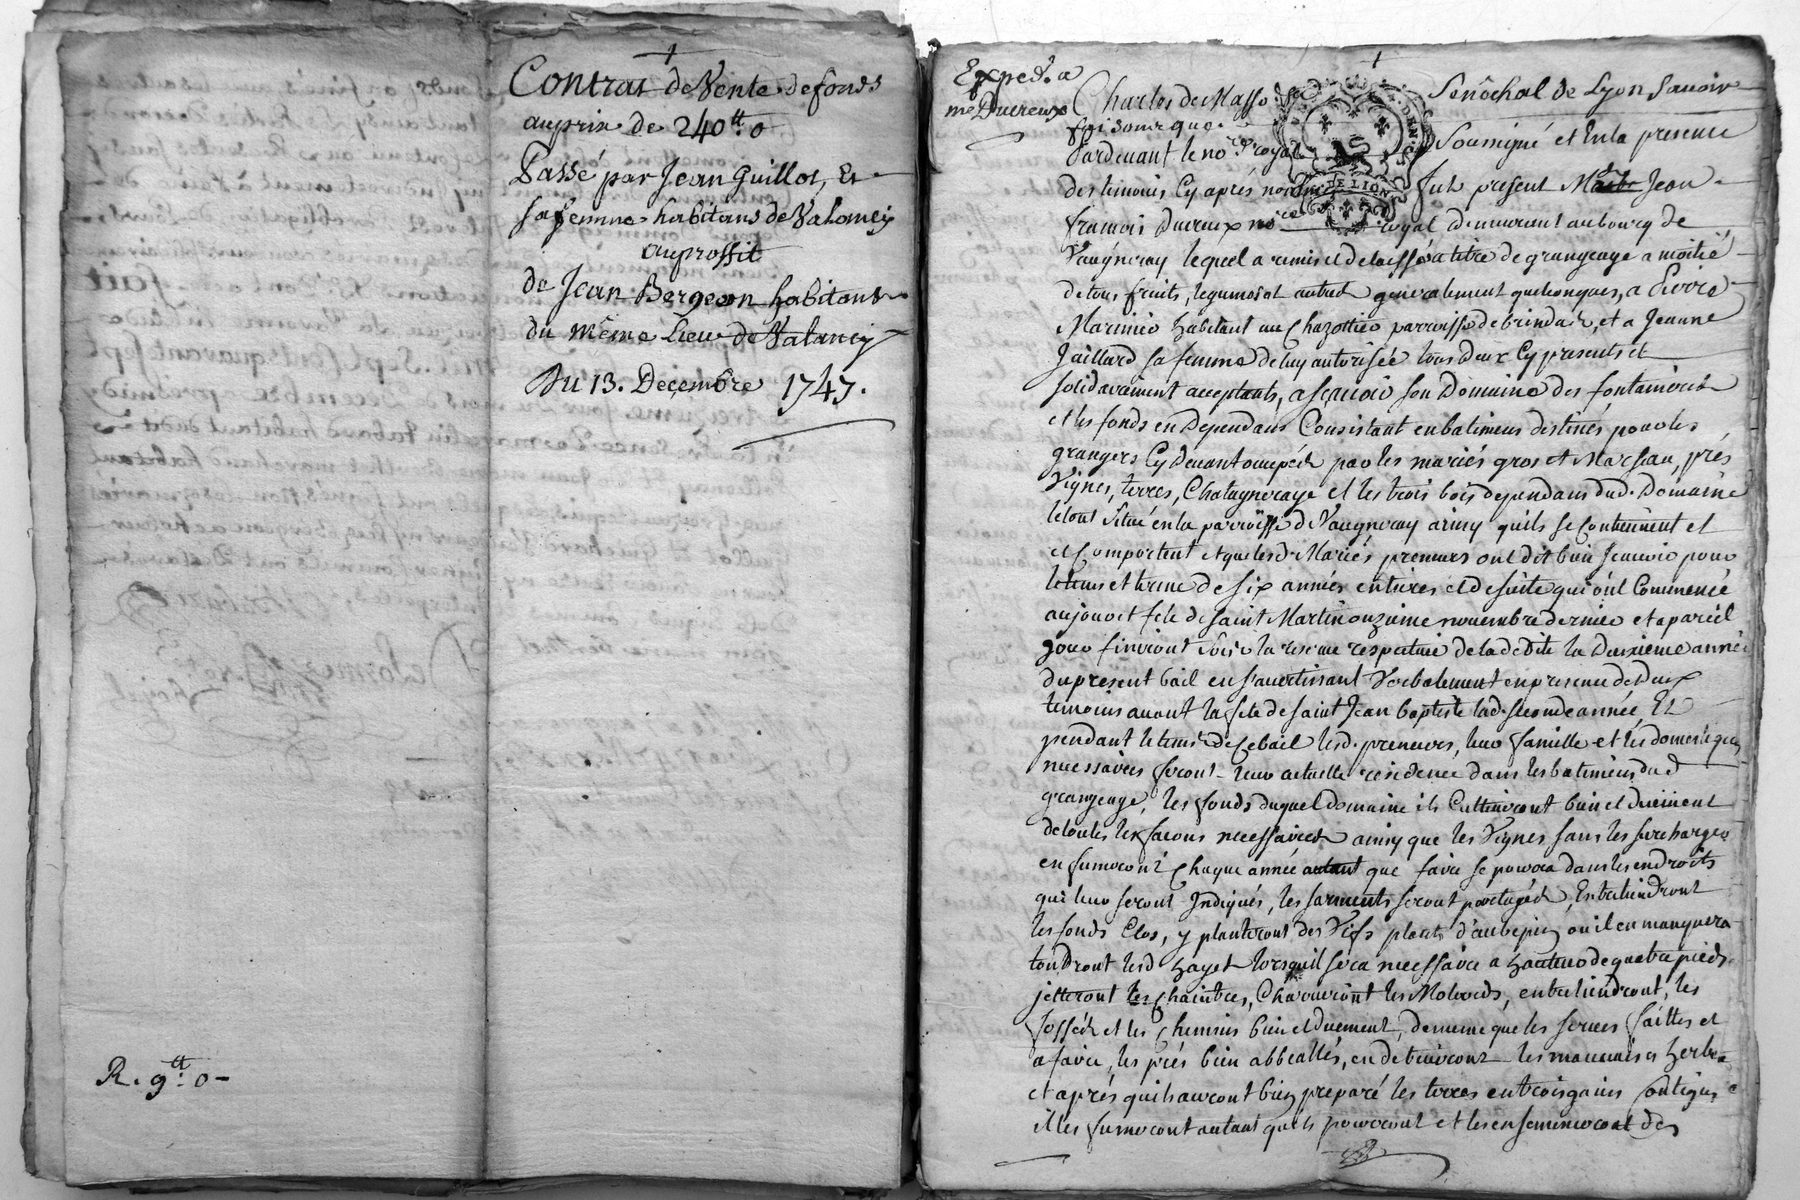 +
Contrat de Vente de fonds
au prix de 240tt. 0
Passé par Jean Guillot, Et
sa femme habitans de Valoncy
au proffit
de Jean Bergeon habitant
du même Lieu de Valoncy
Du 13. Decembre 1747.
R. 9tt: 0-
+
Exped. a
me Ducreux
Charles de Masso Senéchal de Lyon Savoir
faisons que
Pardevant le nore royal Soussigné et En la presence
des temoins Cy aprés nommés fut present Me Jean
francois Ducreux nore royal demeurant au bourg de
Vaugneray lequel a remis et delaissé a titre de grangeage a moitié
de tous fruits, legumes et autres generalement quelconques, a Pierre
habitant au Chazottier parroisse de brindas, et a Jeanne
Jaillard sa femme de luy autorisée tous deux Cy presents et
solidairement acceptants, a scavoir son Domaine des fontanieres
et les fonds en Dependans Consistant en batimens destinés pour les
grangers Cy devant occupés par les mariés gros et prés
Vignes, terres, Chatagneraye et les trois bois dependans dud. Domaine
le tout situé en la parroisse de Vaugneray ainsy quils se Contiennent et
et Comportent et que lesd. Mariés preneurs ont dit bien scavoir pour
le tems et terme de six années entieres et de suite qui ont Commencé
au jour et fete de saint Martin onzieme novembre dernier et a pareil
jour finiront sous la reserve respective de la dedite la Deuxieme année
du present bail en s'avertissant Verbalement en presence de Deux
temoins avant la fete de saint Jean Baptiste lad. seconde année, Et
pendant le tems de Ce bail lesd. preneurs, leur famille et les domestiques
necessaires feront leur actuelle residence dans les batimens dud
grangeage, les fonds duquel domaine ils Cultiveront bien et duement
de toutes les facons necessaires ainsy que les Vignes sans les surcharger
en fumeront Chaque année autant que faire se pourra dans les endroits
qui leur seront Indiqués, les sarments seront partagés, Entretiendront
les fonds Clos, y planteront des Vifs plants d'aubepin ou il en manquera
tondront lesd hayes lorsquil sera necessaire a hauteur de quatre pieds,
jetteront les chaintres, entretiendront, les
fossés et les Chemins bien et duement, de meme que les serves faittes et
a faire, les prés bien en detruiront les mauvaises herbes
et aprés quils auront bien preparé les terres en trois
il les fumeront autant quils pourront et les ensemenceront de